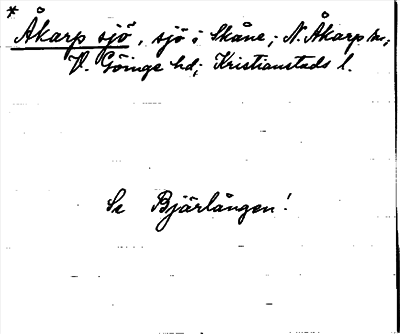 *
Åkarp sjö, sjö i Skåne; N. Åkarp sn;
V. Göinge hd; Kristianstads l.
Se Bjärlången!